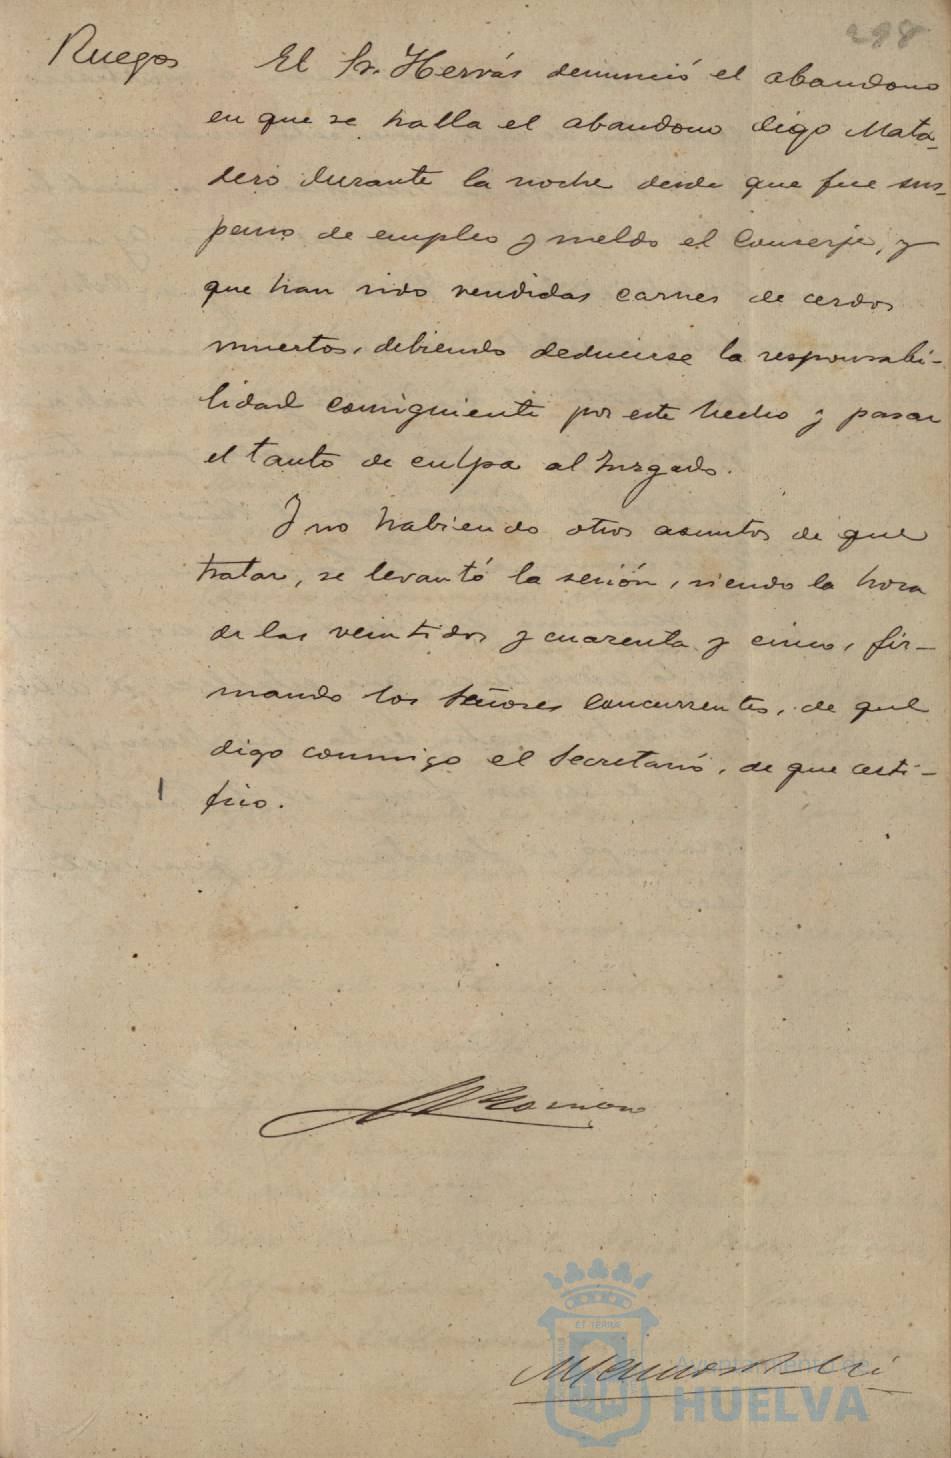 298
Ruegos El Sr. Hervás denunció el abandono
en que se halla el abandono digo Mata-
dero durante la noche desde que fue sus-
penso de empleo y sueldo el Conserje, y
que han sido vendidas carnes de cerdos
muertos, debiendo deducirse la responsabi-
lidad consiguiente por este hecho y pasar
el tanto de culpa al Juzgado.
Y no habiendo otros asuntos de que
tratar, se levantó la sesión, siendo la hora
de las veintidos y cuarenta y cinco, fir-
mando los Señores concurrentes, de que
digo conmigo el Secretario, de que certi-
fico.
ET TERRAE
Ayuntamiento de
HUELVA